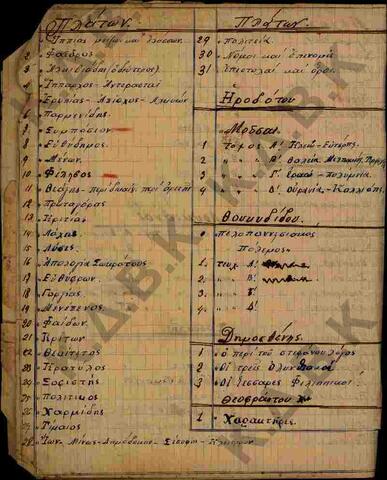 Πλάτων.
1 Ἱππίας μείζων καὶ ἐλάσσων.
2 " Φαῖδρος
3 " Ἀλκιβιάδη (ὁ δεύτερος)
4 " Ἵππαρχος - Ἀντερασταί
5 Ἐρυξίας - Ἀξίοχος - Ἀλκυών
6 " Παρμενίδης
7 " Συμπόσιον
8 " Εὐθύδημος
9 " Μένων
10 " Φίληβος
11 " Θεάγης - περὶ δικαίου περὶ ἀρετῆς
12 " Πρωταγόρας
13 " Κριτίας
14 " Λάχης
15 " Λύσις
16 " Ἀπολογία Σωκράτους
17 " Εὐθύφρων
18 " Γοργίας
19 " Μενέξενος
20 " Φαίδων
21 " Κρίτων
22 " Θεαίτητος
23 " Κρατύλος
24 " Σοφιστής
25 " Πολιτικός
26 " Χαρμίδης
27 " Τίμαιος
28 " Ἴων - Μίνως - Δημόδοκος - Σίσυφος - Κλειτοφῶν
Πλάτων.
29 " Πολιτεία
30 " Νόμοι καὶ Ἐπινομίς
31 Ἐπιστολαί καὶ ὅροι
Ἡροδότου
Μοῦσαι
1 Τόμος Α' Κλειώ - Εὐτέρπη.
2 " " Β' Θαλεία Μελπομένη
3 " " Γ' Ἐρατώ - Πολύμνια
4 " " Δ' Οὐρανία - Καλλιόπη
Θουκυδίδου.
ὁ Πελοποννησιακὸς
Πόλεμος
1. τευχ. Α'
2. " Β'
3. " Γ'
4. " Δ'
Δημοσθένης.
1 " ὁ περὶ τοῦ στεφάνου λόγος
2 " Οἱ τρεῖς Ὀλυνθιακοί
3 " Οἱ τέσσαρες Φιλιππικοί
Θεοφράστου
1 Χαρακτῆρες
Κ.Δ.Β.Κ